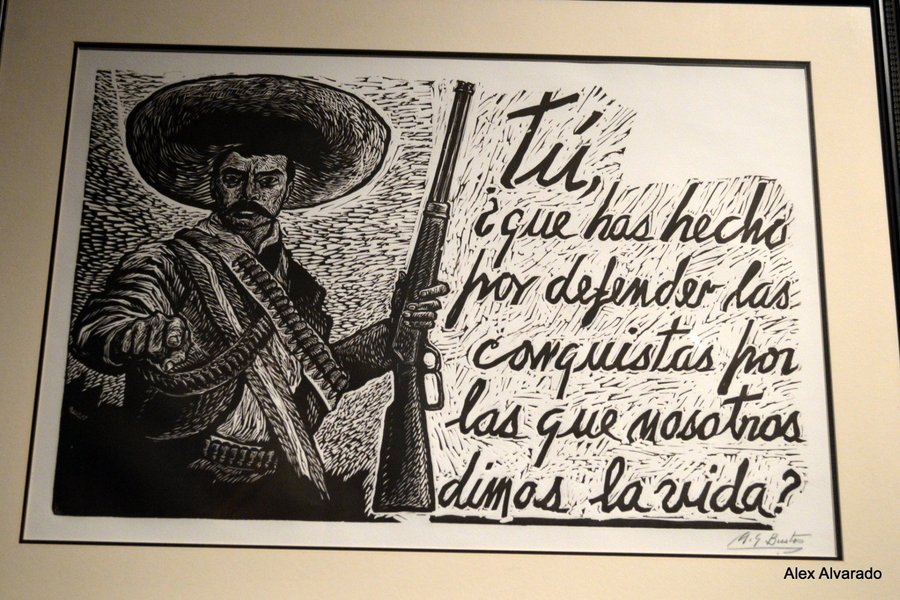 Tú,
¿que has hecho
por defender las
conquistas por
las que nosotros
dimos la vida?
A. G. Bustos
Alex Alvarado